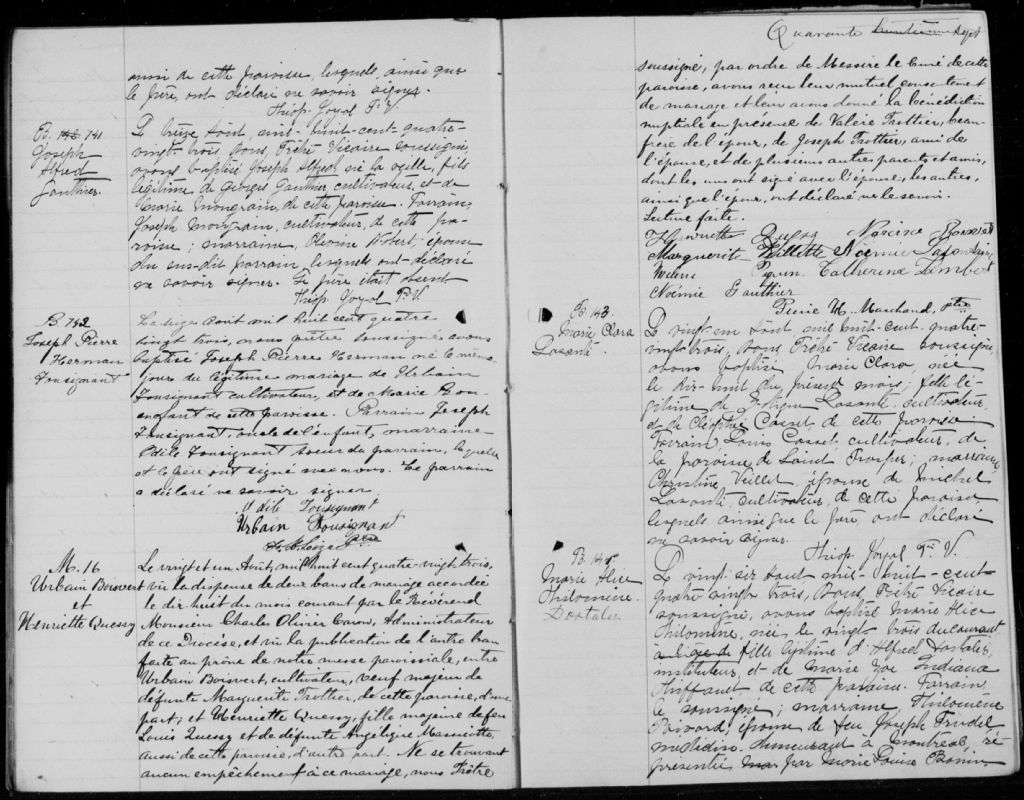 aussi de cette paroisse, lesquels, ainsi que
le père, ont déclaré ne savoir signer.
Théop. Joyal P. V.
B. 741
Joseph
Alfred
Gauthier.
Le treize août, mil-huit-cent-quatre-
vingt-trois, nous Prêtre Vicaire soussigné,
avons baptisé Joseph Alfred, né la veille, fils
légitime de Georges Gauthier, cultivateur, et de
Marie Mongrain, de cette paroisse. Parrain,
Joseph Mongrain, cultivateur, de cette pa-
roisse; marraine, Hobert, épouse
du sus-dit parrain, lesquels ont déclaré
ne savoir signer. Le père était absent
Théop. Joyal P. V.
B. 742
Joseph Pierre
Herman
Tousignant
Le seize Août mil huit cent quatre
vingt trois, nous prêtre soussigné avons
baptisé Joseph Pierre Herman né le même
jour du légitime mariage de Urbain
Tousignant cultivateur, et de Marie
de cette paroisse. Parrain Joseph
Tousignant, oncle de l'enfant, marraine
Odile Tousignant soeur du parrain, laquelle
et le père ont signé avec nous. Le parrain
a déclaré ne savoir signer
Odile Tousignant
Urbain Tousignant
Ptre
M. 16
Urbain Boisvert
et
Henriette Quessy
Le vingt et un Août, mil huit cent quatre-vingt trois,
vu la dispense de deux bans de mariage accordée
le dix huit du mois courant par le Révérend
Monsieur Charles Olivier Caron, Administrateur
de ce Diocèse, et vu la publication de l'autre ban
faite au prône de notre messe paroissiale, entre
Urbain Boisvert, cultivateur, veuf majeur de
défunte Marguerite Trottier, de cette paroisse, d'une
part; et Henriette Quessy, fille majeure de feu
Louis Quessy et de défunte Angélique Massicotte,
aussi de cette paroisse, d'autre part. Ne se trouvant
aucun empêchement à ce mariage, nous Prêtre
Quarante sept
soussigné, par ordre de Messire le Curé de cette
paroisse, avons reçu leur mutuel consentement
de mariage et leur avons donné la bénédiction
nuptiale en présence de Valère Trottier, beau-
frère de l'époux, de Joseph Trottier, ami de
l'épouse, et de plusieurs autres parents et amis,
dont les uns ont signé avec l'épouse, les autres,
ainsi que l'époux, ont déclaré ne le savoir.
Lecture faite.
Henriette Narcisse
Marguerite Willette Noémie
Catherine Lambert
Noémie Gauthier
Pierre H. Marchand, ptre
B. 143.
Marie Clara
Le vingt-un août mil-huit-cent-quatre-
vingt-trois, nous Prêtre Vicaire soussigné,
avons baptisé Marie Clara, née
le dix-huit du présent mois; fille lé-
gitime de cultivateur,
et de Cléophie Cosset, de cette paroisse
Parrain Louis Cosset cultivateur, de
la paroisse de Saint Prosper; marraine,
Christine Veillet, épouse de Michel
cultivateur, de cette paroisse
lesquels ainsi que le père, ont déclaré
ne savoir signer.
Théop. Joyal P. V.
Marie Alice
Philomène
Dostaler
Le vingt-six août mil-huit-cent
quatre-vingt-trois, nous Prêtre Vicaire
soussigné, avons baptisé Marie Alice
Philomène, née le vingt-trois du courant
fille légitime d'Alfred Dostaler,
instituteur, et de Marie Indiana
de cette paroisse. Parrain,
le soussigné; marraine, Philomène
épouse de feu Joseph Trudel
médecin. demeurant à Montréal, re-
présentée par Marie Louise